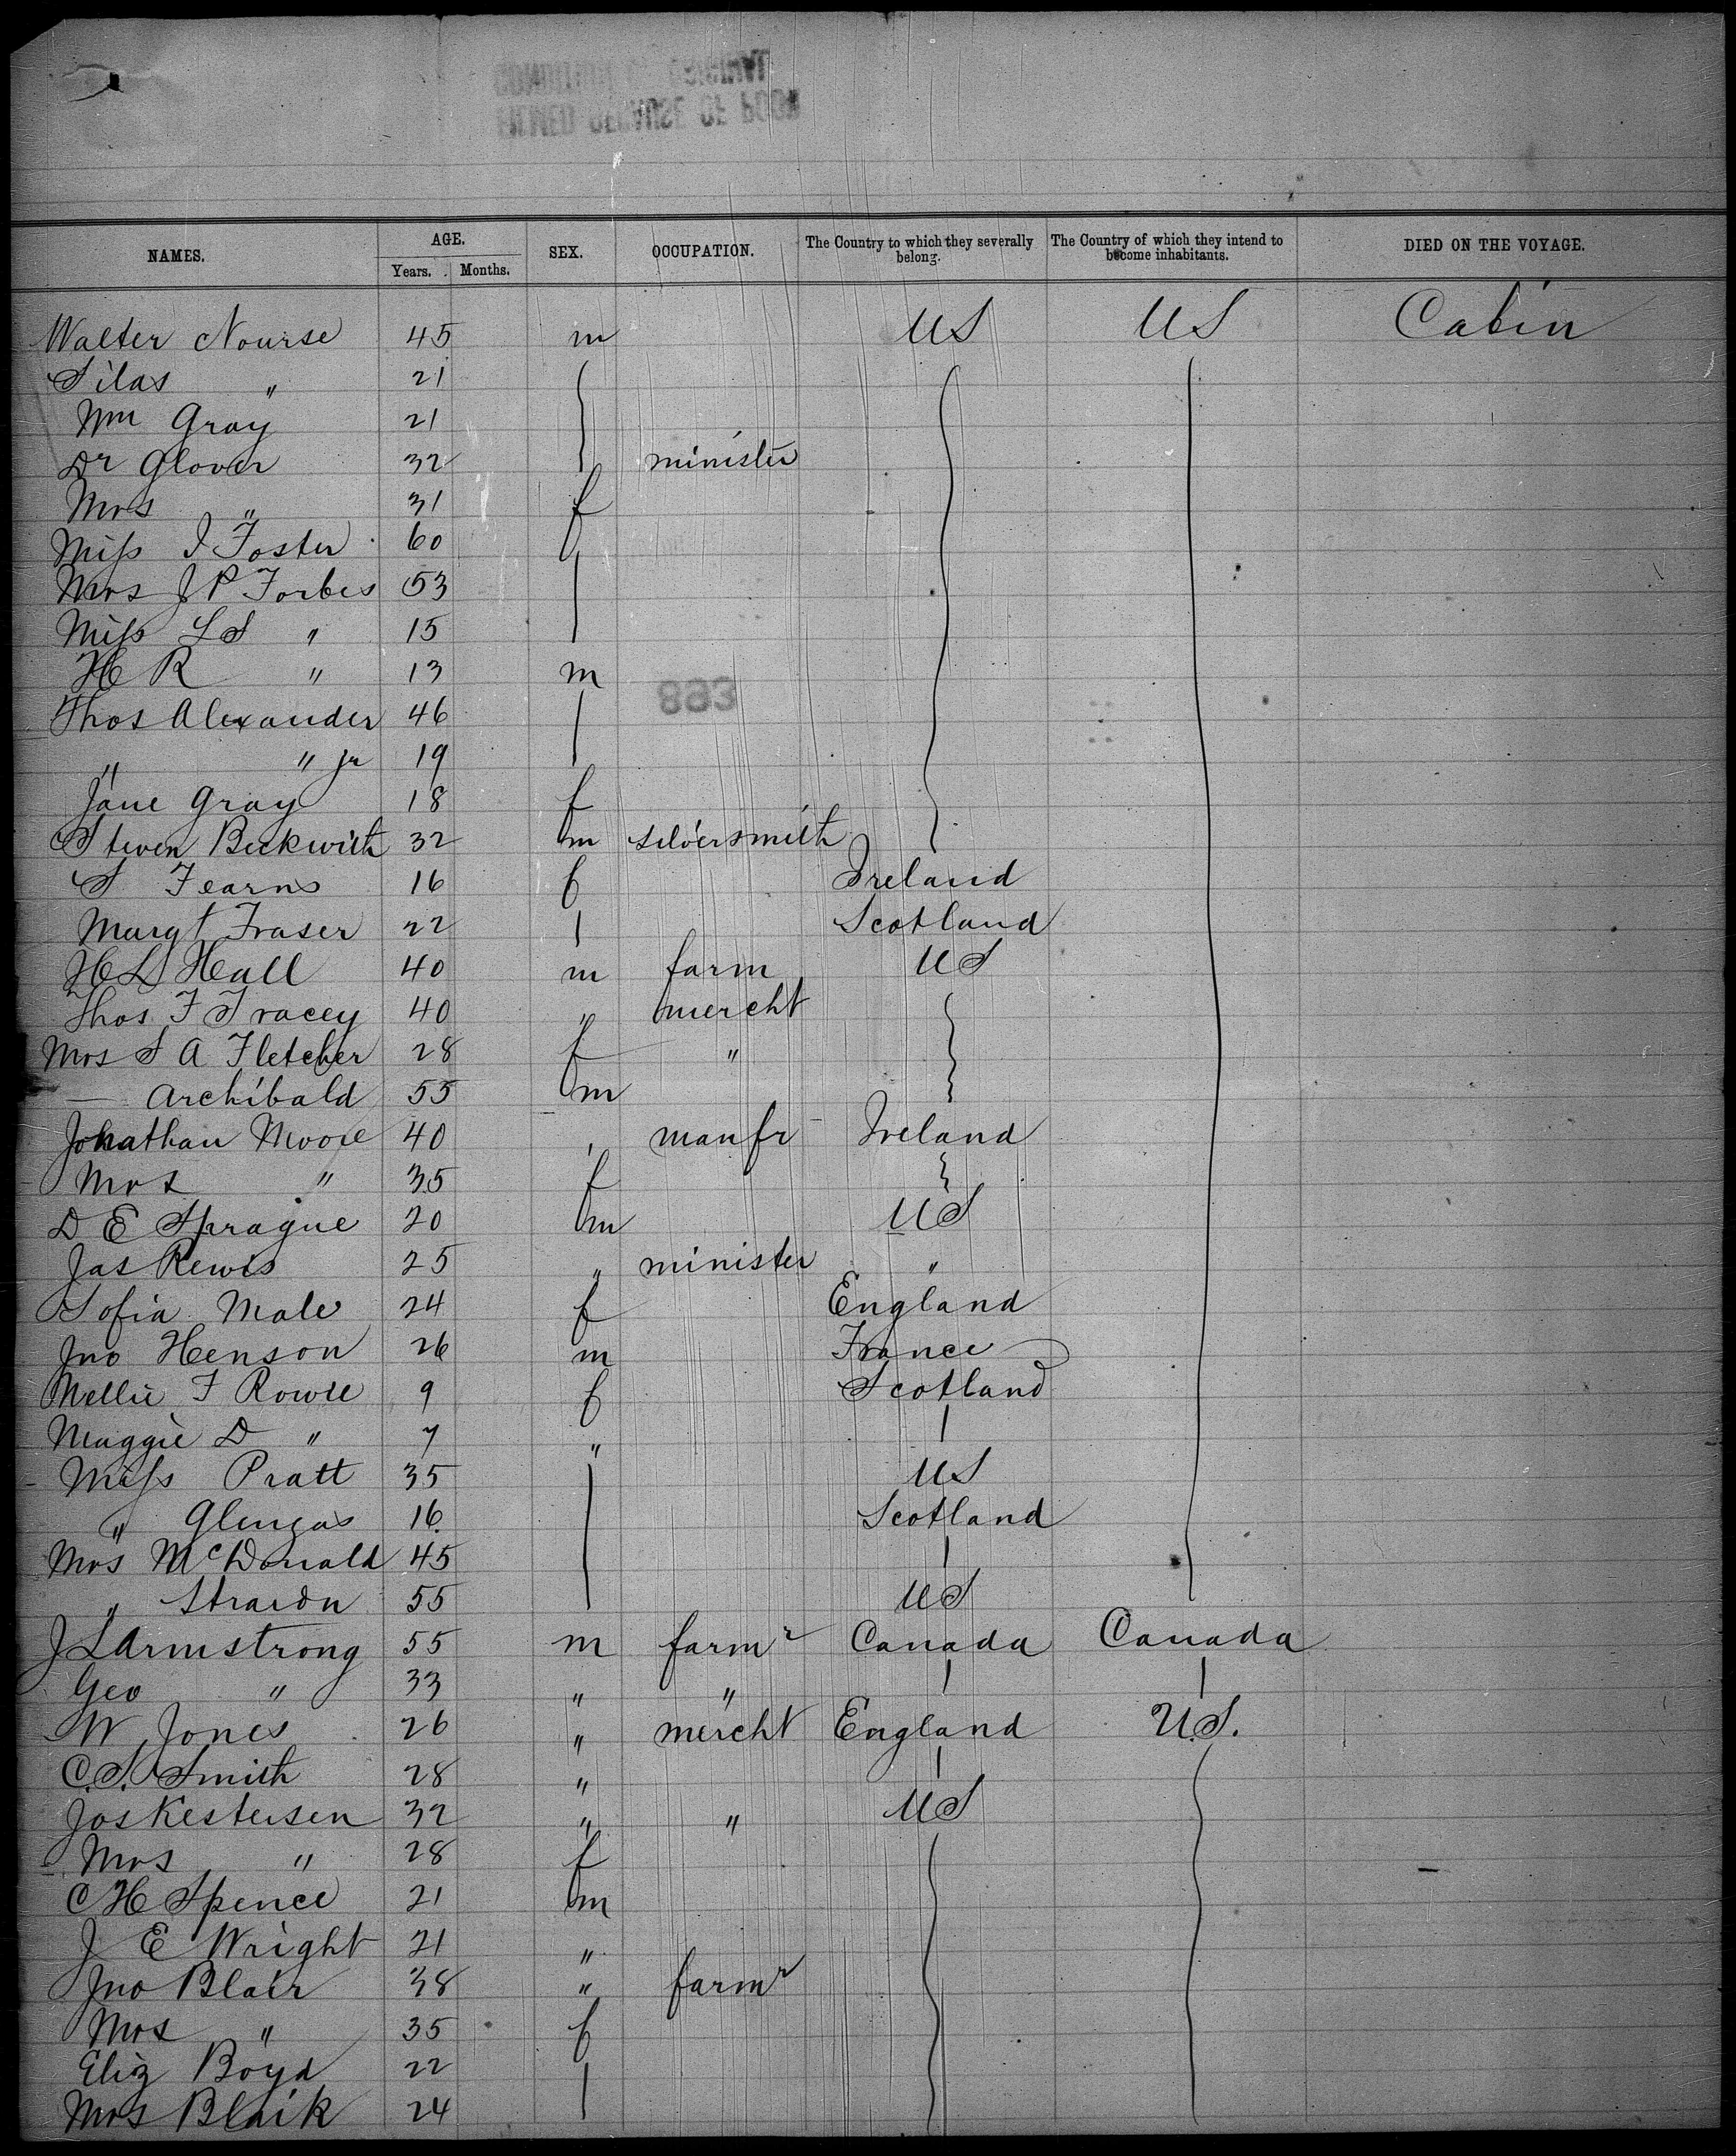 NAMES. AGE. Years. Months. SEX. OCCUPATION. The Country to which they severally belong. The Country of which they intend to become inhabitants. DIED ON THE VOYAGE.
Walter Nourse 45 m US US Cabin
Silas " 21
Wm Gray 21
Dr Glover 32 minister
Mrs " 31 f
Miss I Foster 60 f
Mrs J P Forbes 53
Miss L S " 15
H R " 13 m
883
Thos Alexander 46
" " jr 19
Jane Gray 18 f
Steven Beckwith 32 m silversmith
S Fearns 16 f Ireland
Margt Fraser 22 Scotland
H L Hall 40 m farm US
Thos F Tracey 40 " mercht
Mrs S A Fletcher 28 f "
— Archibald 55 m
Jonathan Moore 40 , manfr Ireland
Mrs " 35 f
D E Sprague 20 m US
Jas Rewis 25 " minister "
Sofia Male 24 f England
Jno Henson 26 m France
Mellie F Rowie 9 f Scotland
Maggie D " 7 "
Miss Pratt 35 US
" Glengas 16 Scotland
Mrs McDonald 45
" Strawn 55 US
J L Armstrong 55 m farmr Canada Canada
Geo " 33 " "
W Jones 26 " mercht England U.S.
C.S. Smith 28 "
Jos Kestersen 32 " " US
Mrs " 28 f
C H Spence 21 m
J E Wright 21 "
Jno Blair 38 " farmr
Mrs " 35 f
Eliz Boyd 22
Mrs Blaik 24